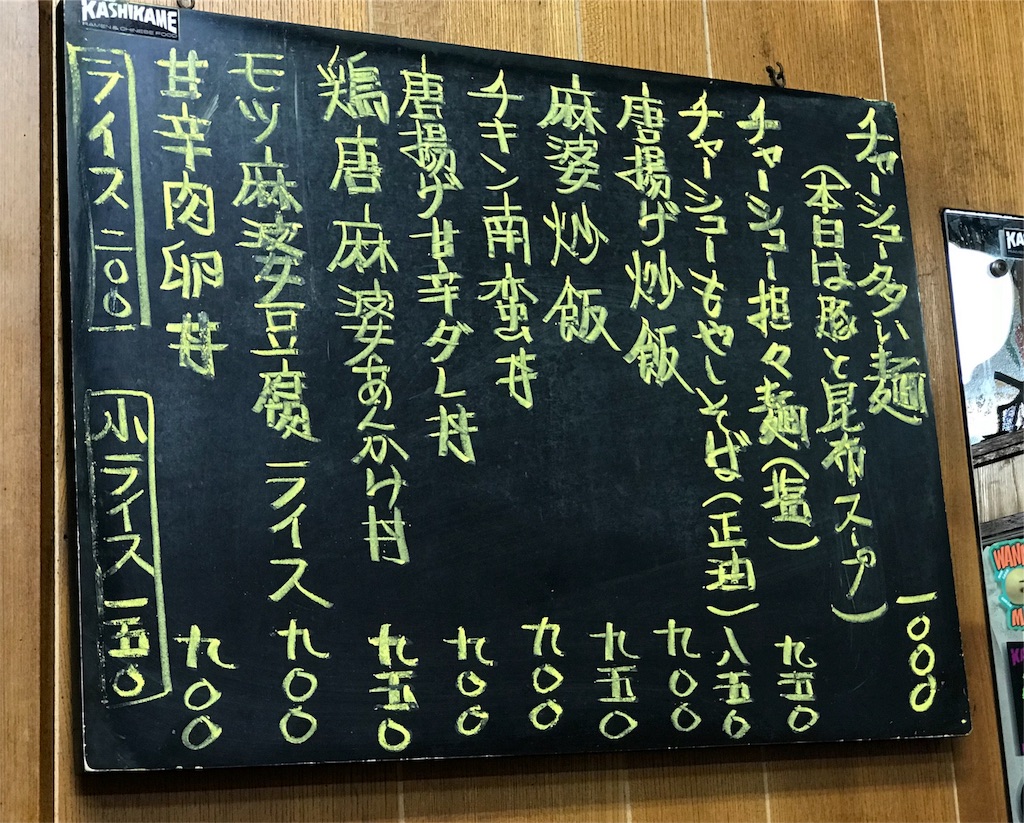 KASHIKAME
RAMEN & CHINESE FOOD
チャーシュー多い麺 一〇〇〇
(本日は豚と昆布スープ)
チャーシュー担々麺(塩) 九五〇
チャーシューもやしそば(正油) 八五〇
唐揚げ炒飯 九〇〇
麻婆炒飯 九五〇
チキン南蛮丼 九〇〇
唐揚げ甘辛ダレ丼 九〇〇
鶏唐麻婆あんかけ丼 九五〇
モツ麻婆豆腐ライス 九〇〇
甘辛肉卵丼 九〇〇
ライス 二〇〇
小ライス 一五〇